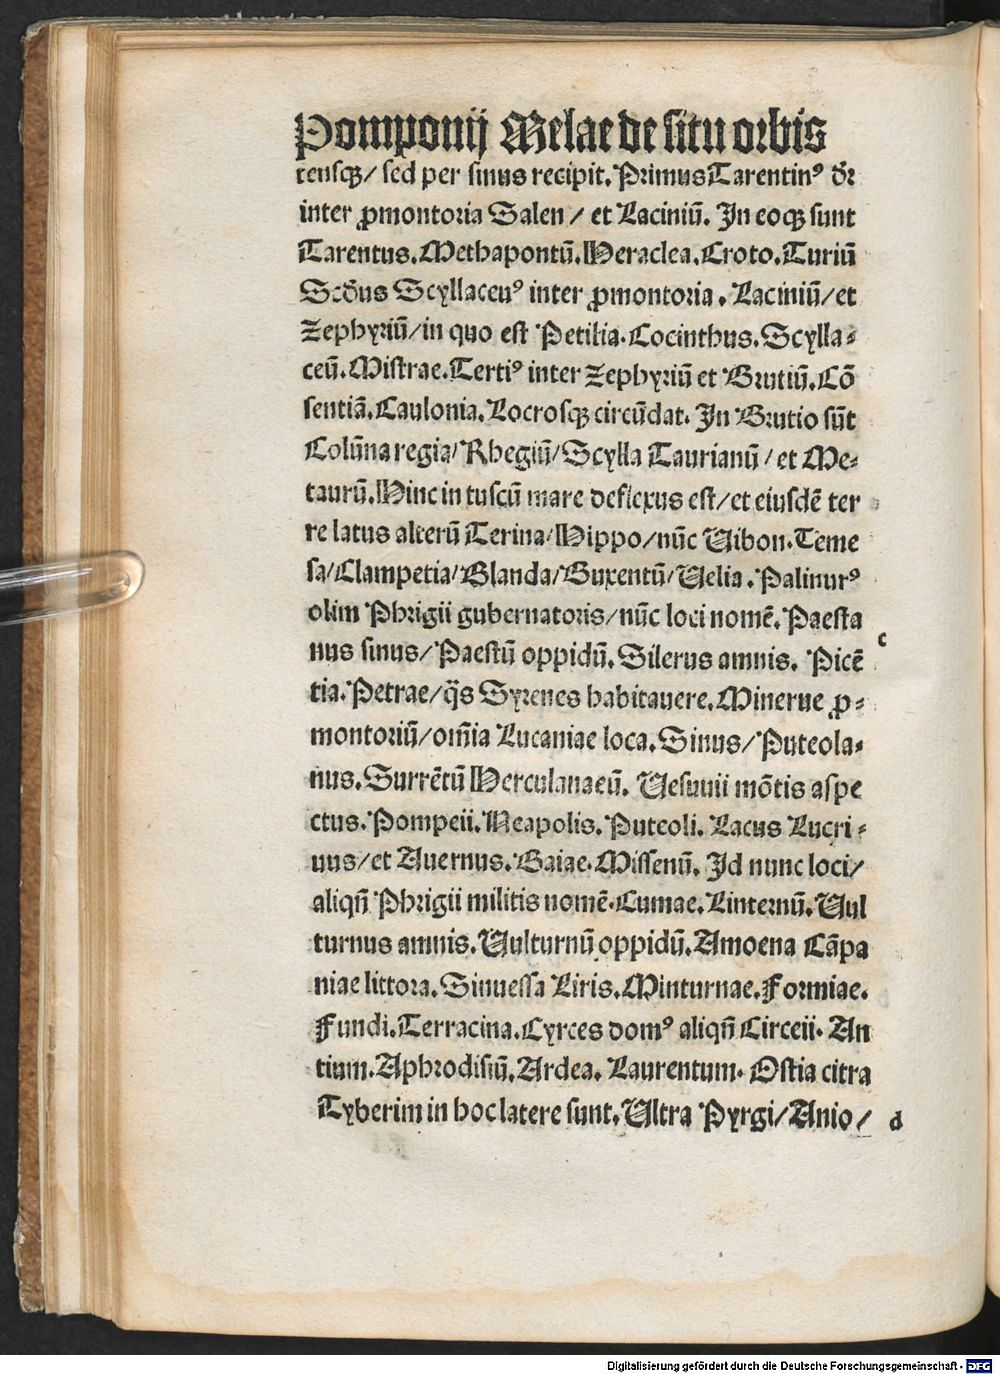 Pomponij Melae de situ orbis
tensqꝫ/ sed per sinus recipit. Primus Tarentinꝰ dr̃
inter ꝓmontoria Salen/ et Laciniū. In eoqꝫ sunt
Tarentus. Methapontū. Heraclea. Croto. Turiū
Scđus Scyllaceuꝰ inter ꝓmontoria. Laciniū/et
Zephyriū/in quo est Petilia. Cocinthus. Scylla⸗
ceū. Mistrae. Tertiꝰ inter Zephyriū et Brutiū. Cō
sentiā. Caulonia. Locrosqꝫ circūdat. In Brutio sūt
Colūna regia/ Rhegiū/ Scylla Taurianū/ et Me⸗
taurū. Hinc in tuscū mare deflexus est/ et eiusdē ter
re latus alterū Terina/ Hippo/ nūc Vibon. Teme
sa/ Clampetia/ Blanda/ Buxentū/ Velia. Palinurꝰ
olim Phrigii gubernatoris/ nūc loci nomē. Paesta
nus sinus/ Paestū oppidū. Silerus amnis. Picē
c
tia. Petrae/ q̄s Syrenes habitauere. Minerue ꝓ⸗
montoriū/ om̄ia Lucaniae loca. Sinus/ Puteola⸗
nus. Surrētū Herculanaeū. Vesuuii mōtis aspe
ctus. Pompeii. Neapolis. Puteoli. Lacus Lucri⸗
uus/ et Auernus. Baiae. Missenū. Id nunc loci/
aliqn̄ Phrigii militis nomē. Cumae. Linternū. Vul
turnus amnis. Vulturnū oppidū. Amoena Cāpa
niae littora. Sinuessa Liris. Minturnae. Formiae.
Fundi. Terracina. Cyrces domꝰ aliqn̄ Circeii. An
tium. Aphrodisiū. Ardea. Laurentum. Ostia citra
Tyberim in hoc latere sunt. Vltra Pyrgi/ Anio/
d
Digitalisierung gefördert durch die Deutsche Forschungsgemeinschaft - DFG